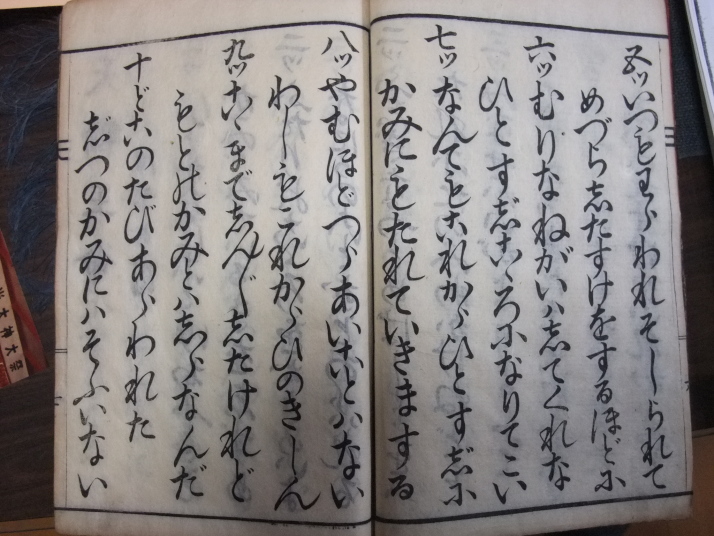 五ッいつもわらわれそしられて
めづらしたすけをするほどに
六ッむりなねがいハしてくれな
ひとすじこゝろになりてこい
七ッなんでもこれからひとすじに
かみにもたれていきまする
八ッやむほどつらあいことハない
わしもこれからひのきしん
九ッこゝまでしん〴〵したけれど
もとのかみとハしらなんだ
十どこのたびあらわれた
じつのかみにハそふいない